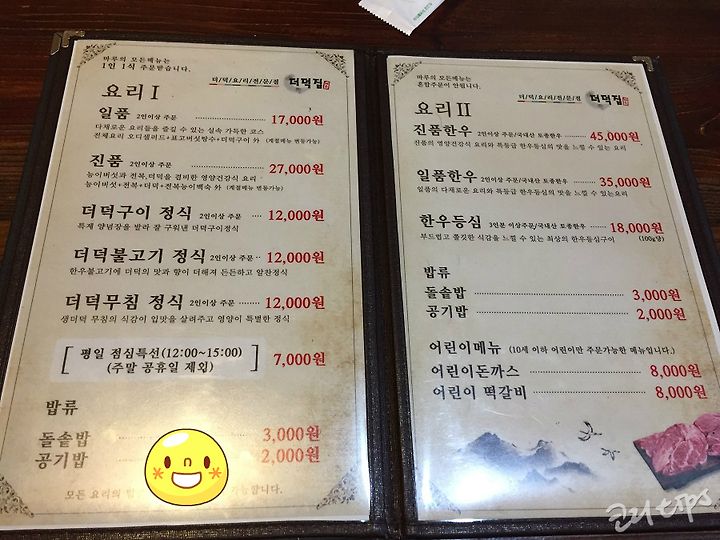 마루의 모든메뉴는
1인 1식 주문받습니다.
더/덕/요/리/전/문/점 더덕집
요리 I
일품 2인이상 주문 17,000원
다채로운 요리들을 즐길 수 있는 실속 가득한 코스
전체요리 오디셀러드+표고버섯탕수+더덕구이 外 (계절메뉴 변동가능)
진품 2인이상 주문 27,000원
능이버섯과 전복,더덕을 겸비한 영양건강식 요리
능이버섯+전복+더덕+전복능이백숙 外 (계절메뉴 변동가능)
더덕구이 정식 2인이상 주문 12,000원
특제 양념장을 발라 잘 구워낸 더덕구이정식
더덕불고기 정식 2인이상 주문 12,000원
한우불고기에 더덕의 맛과 향이 더해져 든든하고 알찬정식
더덕무침 정식 2인이상 주문 12,000원
생더덕 무침의 식감이 입맛을 살려주고 영양이 특별한 정식
[ 평일 점심특선(12:00~15:00) ] 7,000원
(주말 공휴일 제외)
밥류
돌솥밥 3,000원
공기밥 2,000원
모든 요리의 가능합니다.
마루의 모든메뉴는
혼합주문이 안됩니다.
더/덕/요/리/전/문/점 더덕집
요리 II
진품한우 2인이상 주문/국내산 토종한우 45,000원
진품의 영양건강식 요리와 특등급 한우등심의 맛을 느낄 수 있는 요리
일품한우 2인이상 주문/국내산 토종한우 35,000원
일품의 다채로운 요리와 특등급 한우등심의 맛을 느낄 수 있는요리
한우등심 3인분 이상주문/국내산 토종한우 18,000원
부드럽고 쫄깃한 식감을 느낄 수 있는 최상의 한우등심구이 (100g당)
밥류
돌솥밥 3,000원
공기밥 2,000원
어린이메뉴 (10세 이하 어린이만 주문가능한 메뉴입니다.)
어린이돈까스 8,000원
어린이 떡갈비 8,000원
코리tips